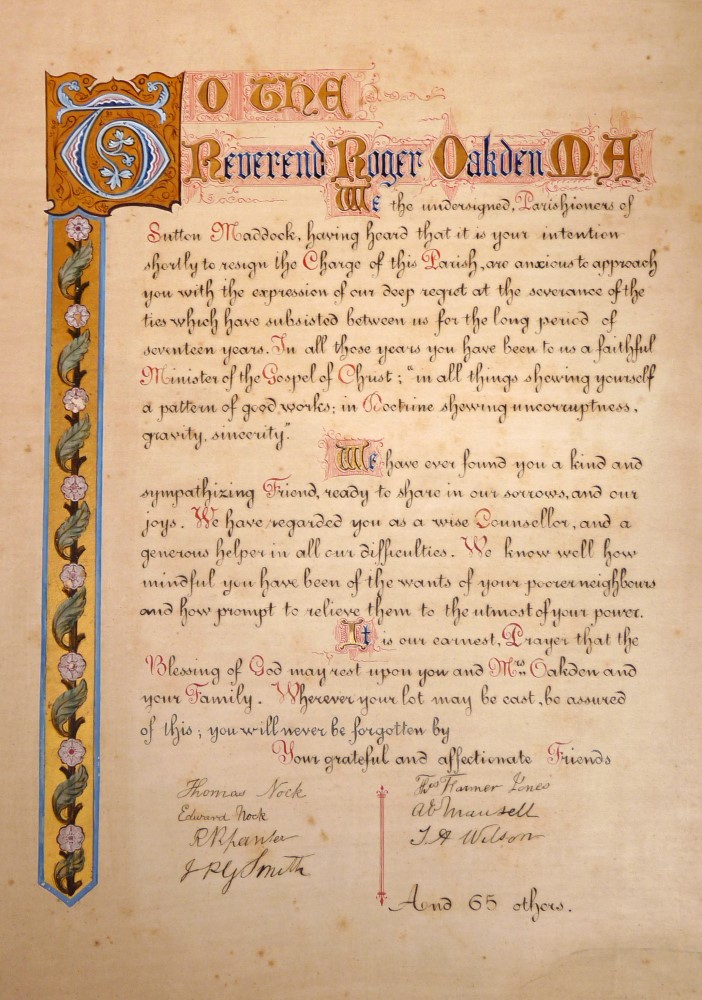 To the
Reverend Roger Oakden M.A.
We the undersigned, Parishioners of
Sutton Maddock, having heard that it is your intention
shortly to resign the Charge of this Parish, are anxious to approach
you with the expression of our deep regret at the severance of the
ties which have subsisted between us for the long period of
seventeen years. In all those years you have been to us a faithful
Minister of the Gospel of Christ; "in all things shewing yourself
a pattern of good works; in Doctrine shewing uncorruptness,
gravity, sincerity."
We have ever found you a kind and
sympathizing Friend, ready to share in our sorrows, and our
joys. We have regarded you as a wise Counsellor, and a
generous helper in all our difficulties. We know well how
mindful you have been of the wants of your poorer neighbours
and how prompt to relieve them to the utmost of your power.
It is our earnest, Prayer that the
Blessing of God may rest upon you and Mrs. Oakden and
your Family. Wherever your lot may be cast, be assured
of this; you will never be forgotten by
Your grateful and affectionate Friends
Thomas Nock
Edward Nock
J P G Smith
Thos Farmer Jones
Mansell
J A Wilson
And 65 others.